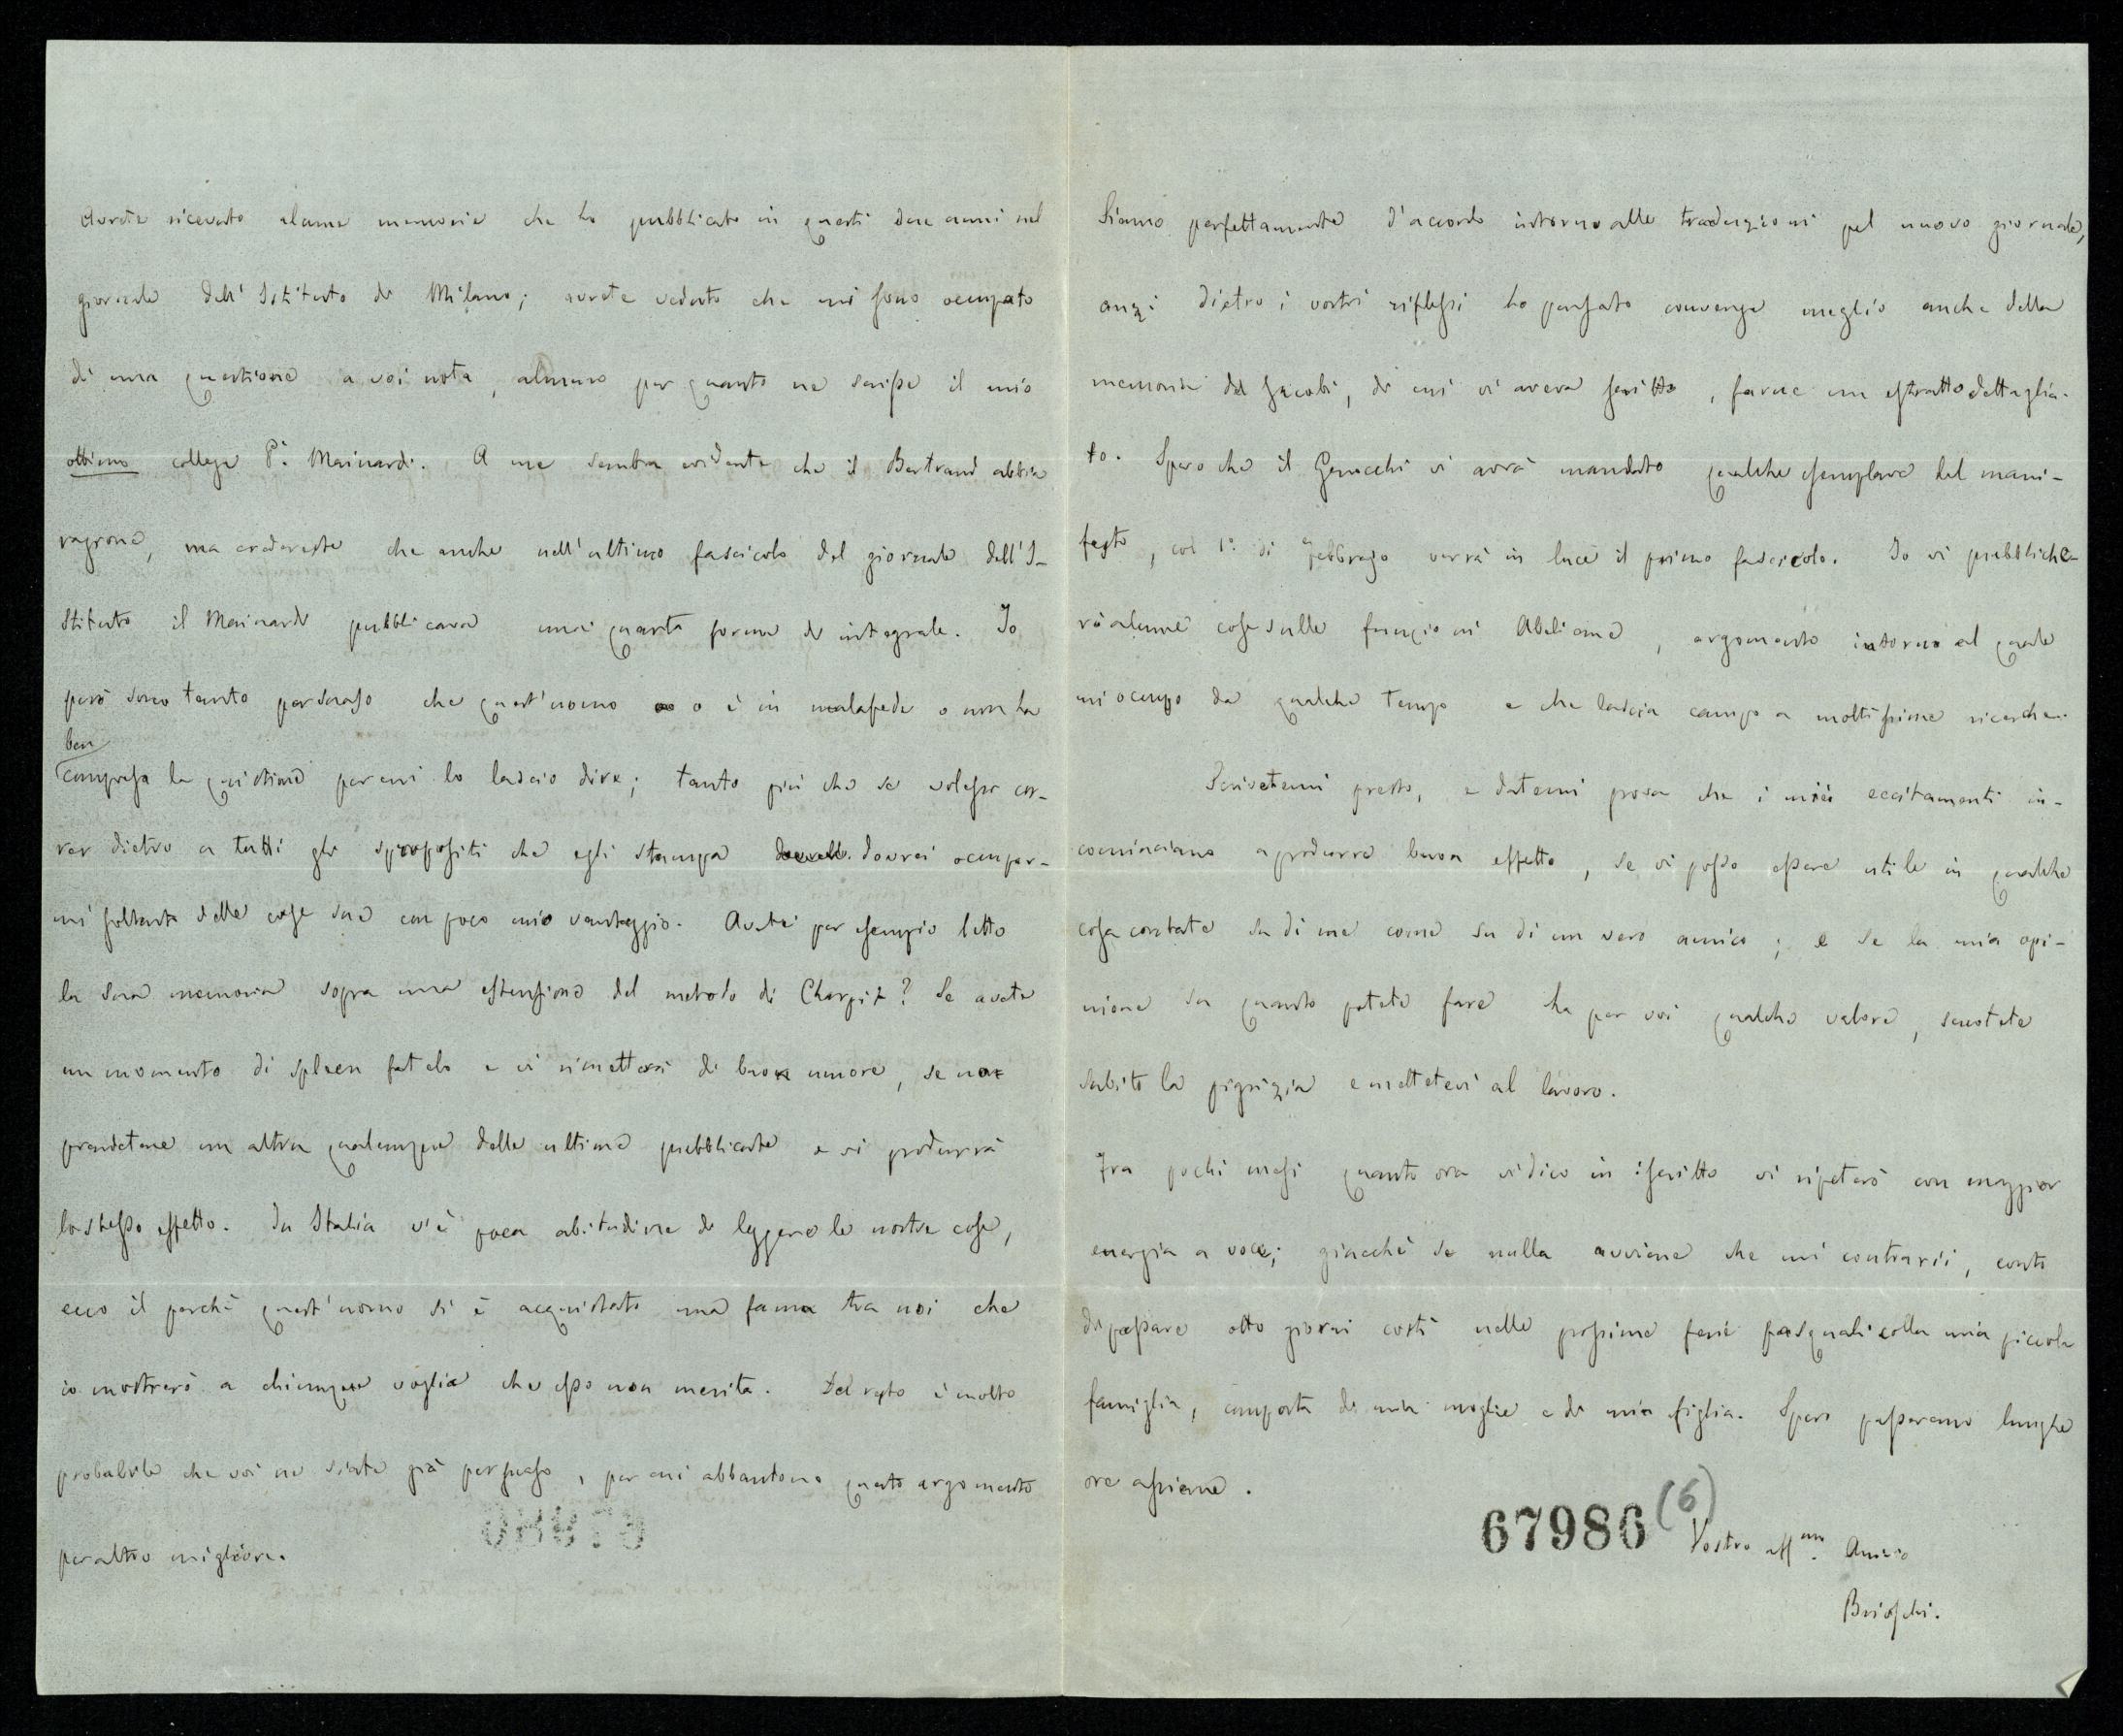 Avrete ricevuto alcune memorie che ho pubblicato in questi due anni nel
giornale dell'Istituto di Milano; avrete veduto che mi sono occupato
di una questione a voi nota, almeno per quanto ne scrisse il mio
ottimo collega P. Mainardi. A me sembra evidente che il Bertrand abbia
ragione, ma credereste che anche nell'ultimo fascicolo del giornale dell'I-
stituto il Mainardi pubblicava una quarta forma di integrale. Io
però sono tanto persuaso che quest'uomo o è in malafede o non ha
ben
compresa la quistione per cui lo lascio dire; tanto più che se volessi cor-
rer dietro a tutti gli spropositi che egli stampa dovrei occupar-
mi soltanto delle cose sue con poco mio vantaggio. Avete per esempio letto
la sua memoria sopra una estensione del metodo di Charpit? Se avete
un momento di spleen fatelo e vi rimetterei di buon umore, se non
prendetene un altra qualunque delle ultime pubblicate e vi produrrà
lo stesso effetto. In Italia v'è poca abitudine di leggere le nostre cose,
ecco il perchè quest'uomo si è acquistato una fama tra noi che
io mostrerò a chiunque voglia che esso non merita. Del resto è molto
probabile che voi ne siate già persuaso, per cui abbandono questo argomento
per altro migliore.
Siamo perfettamente d'accordo intorno alle traduzioni pel nuovo giornale,
anzi dietro i vostri riflessi ho pensato convenga meglio anche della
memoria del Jacobi, di cui vi aveva scritto, farne un estratto dettaglia-
to. Spero che il Genocchi vi avrà mandato qualche esemplare del mani-
festo, col 1° di Febbrajo verrà in luce il primo fascicolo. Io vi pubbliche-
rò alcune cose sulle funzioni Abeliane, argomento intorno al quale
mi occupo da qualche tempo e che lascia campo a moltissime ricerche.
Scrivetemi presto, e datemi prova che i miei eccitamenti in-
cominciano a produrre buon effetto, se vi posso essere utile in qualche
cosa contate su di me come su di un vero amico; e se la mia opi-
nione su quanto potete fare ha per voi qualche valore, scuotete
subito la pigrizia e mettetevi al lavoro.
Fra pochi mesi quanto ora vi dico in iscritto vi ripeterò con maggior
energia a voce; giacchè se nulla avviene che mi contrarii, conto
di passare otto giorni costì nelle prossime ferie pasquali colla mia piccola
famiglia, composta di mia moglie e di mia figlia. Spero passeremo lunghe
ore assieme.
67986 (6)
Vostro aff.mo Amico
Brioschi.